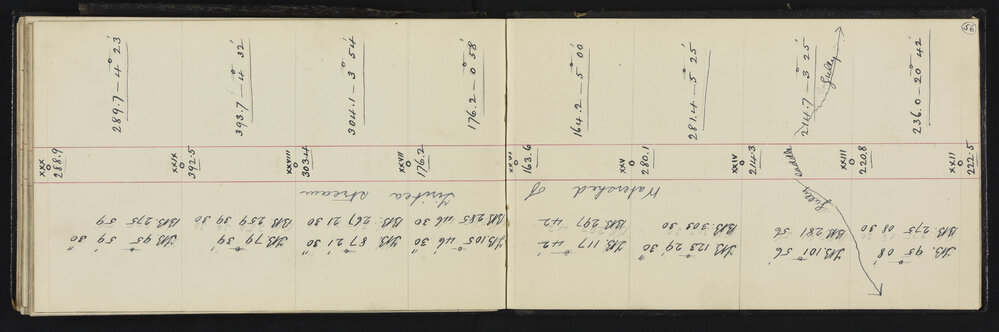 56
289.7 — 4° 23'
393.7 — 4° 32'
304.1 — 3° 54'
176.2 — 0° 58'
164.2 — 5° 00'
281.4 — 5° 25'
214.7 — 3° 25'
Gully
236.0 — 20° 42'
XXX 288.9
XXIX 392.5
XXVIII 303.4
XXVII 176.2
XXVI 163.6
XXV 280.1
XXIV 214.3
saddle
XXIII 220.8
XXII 222.5
Watershed of
Tiritea stream
Gully
BB 275 59
FB 95° 59' 30"
BB 259 39 30
FB 79° 39'
BB 267 21 30
FB 87° 21' 30"
BB 285 46 30
FB 105° 46' 30"
BB 297 42
FB 117° 42'
BB 303 30
FB 123° 29' 30"
BB 281 56
FB 101° 56'
BB 275 08 30
FB. 95° 08'